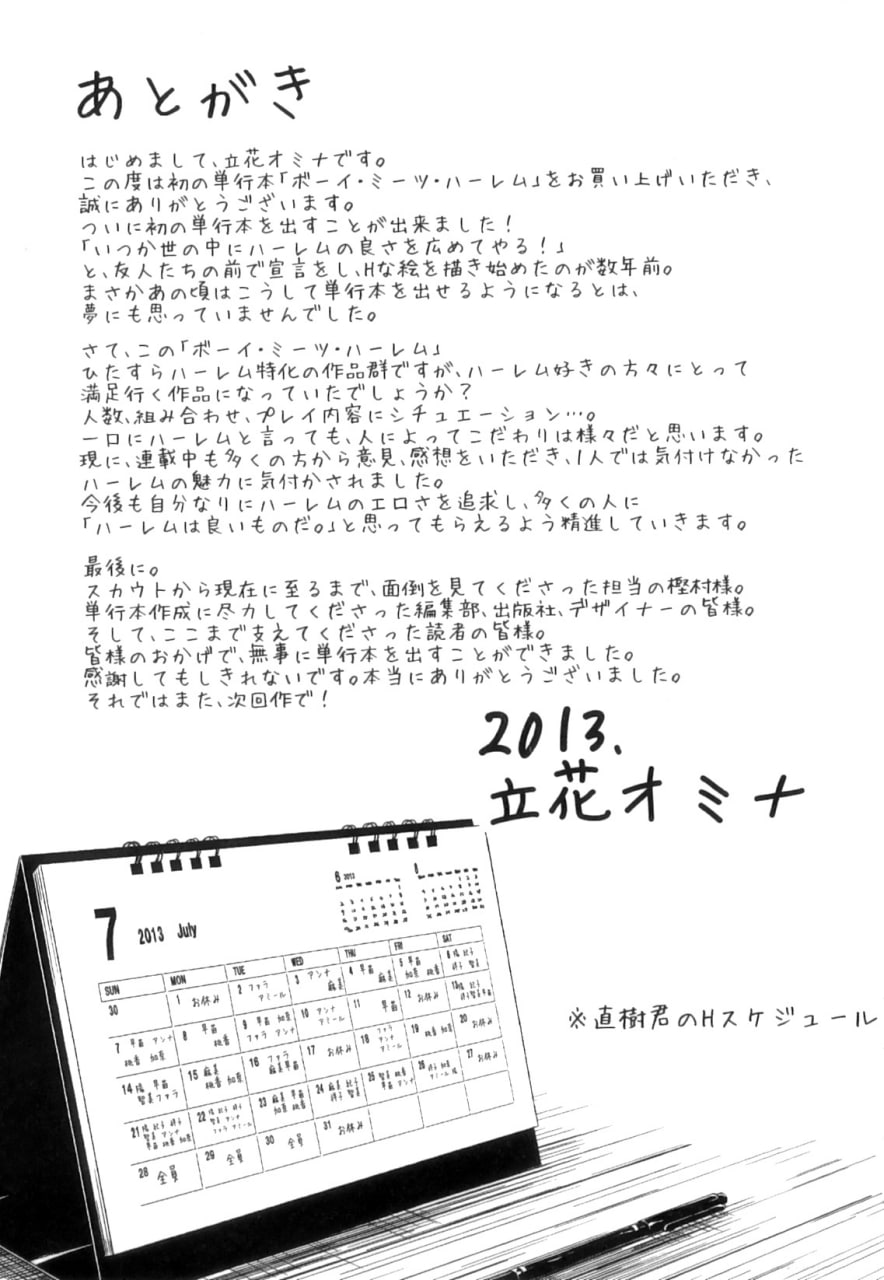 あとがき
はじめまして、立花オミナです。
この度は初の単行本「ボーイ・ミーツ・ハーレム」をお買い上げいただき、
誠にありがとうございます。
ついに初の単行本を出すことが出来ました！
「いつか世の中にハーレムの良さを広めてやる！」
と、友人たちの前で宣言をし、Hな絵を描き始めたのが数年前。
まさかあの頃はこうして単行本を出せるようになるとは、
夢にも思っていませんでした。
さて、この「ボーイ・ミーツ・ハーレム」
ひたすらハーレム特化の作品群ですが、ハーレム好きの方々にとって
満足行く作品になっていたでしょうか？
人数、組み合わせ、プレイ内容にシチュエーション…。
一口にハーレムと言っても、人によってこだわりは様々だと思います。
現に、連載中も多くの方から意見、感想をいただき、1人では気付けなかった
ハーレムの魅力に気付かされました。
今後も自分なりにハーレムのエロさを追求し、多くの人に
「ハーレムは良いものだ。」と思ってもらえるよう精進していきます。
最後に。
スカウトから現在に至るまで、面倒を見てくださった担当の樫村様。
単行本作成に尽力してくださった編集部、出版社、デザイナーの皆様。
そして、ここまで支えてくださった読者の皆様。
皆様のおかげで、無事に単行本を出すことができました。
感謝してもしきれないです。本当にありがとうございました。
それではまた、次回作で！
2013.
立花オミナ
7 2013 July
6 2013
8
SUN MON TUE WED THU FRI SAT
30 1 お休み 2 ファラ アミール 3 アンナ 麻美 4 早苗 麻美 5 早苗 桃香 6
7 早苗 アンナ 桃香 加奈 8 早苗 9 早苗 加奈 ファラ アンナ 10 アンナ アミール 11 早苗 12 お休み 13
14 陽 早苗 智美 ファラ 15 麻美 桃香 加奈 16 ファラ 麻美 早苗 17 お休み 18 ファラ アンナ アミール 19 桃香 加奈 20 お休み
21 22 23 麻美 早苗 加奈 桃香 24 25 26 27 お休み
28 全員 29 全員 30 全員 31 お休み
※直樹君のHスケジュール